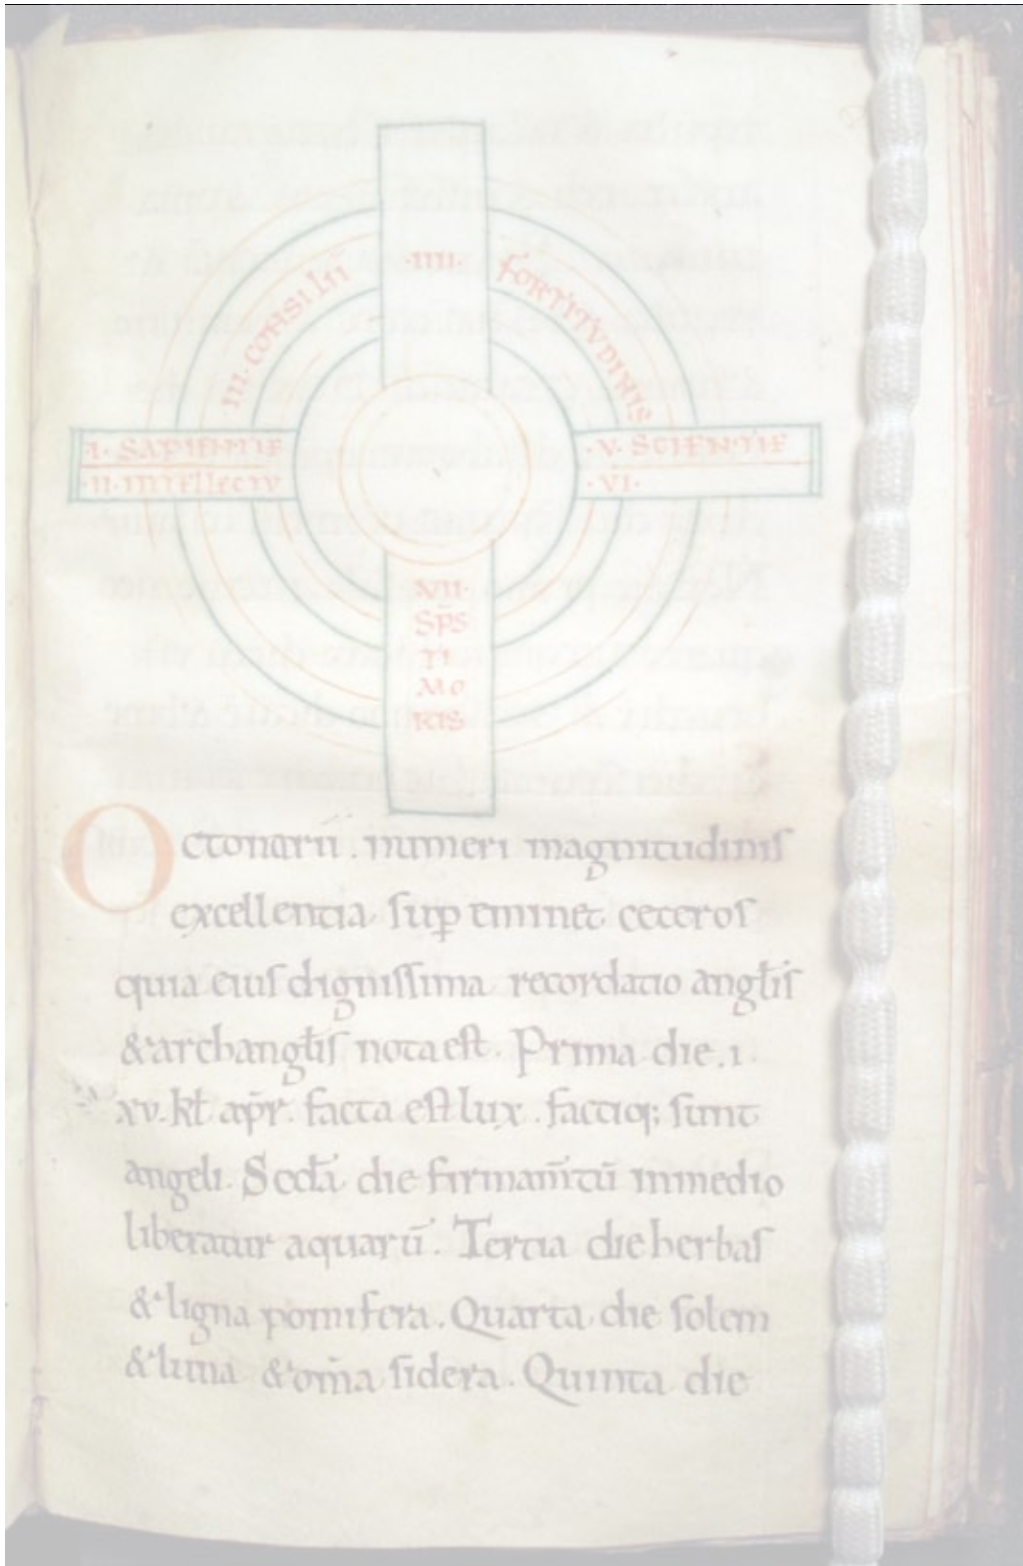 ·IIII·
III·CONSILII
FORTITUDINIS
·I·SAPIENTIE
·II·INTELLECTV
·V·SCIENTIE
·VI·
VII·
SP̄S
TI
MO
RIS
Octonarii. numeri magnitudinis
excellentia sup eminet ceteros
quia eius dignissima recordatio angl̄is
& archangl̄is nota est. Prima die .i.
xv. kl̄ ap̄r. facta est lux. factiq; sunt
angeli. Scd̄a die firmam̄tū inmedio
liberatur aquarū. Tertia die herbas
& ligna pomifera. Quarta die solem
& luna & om̄ia sidera. Quinta die